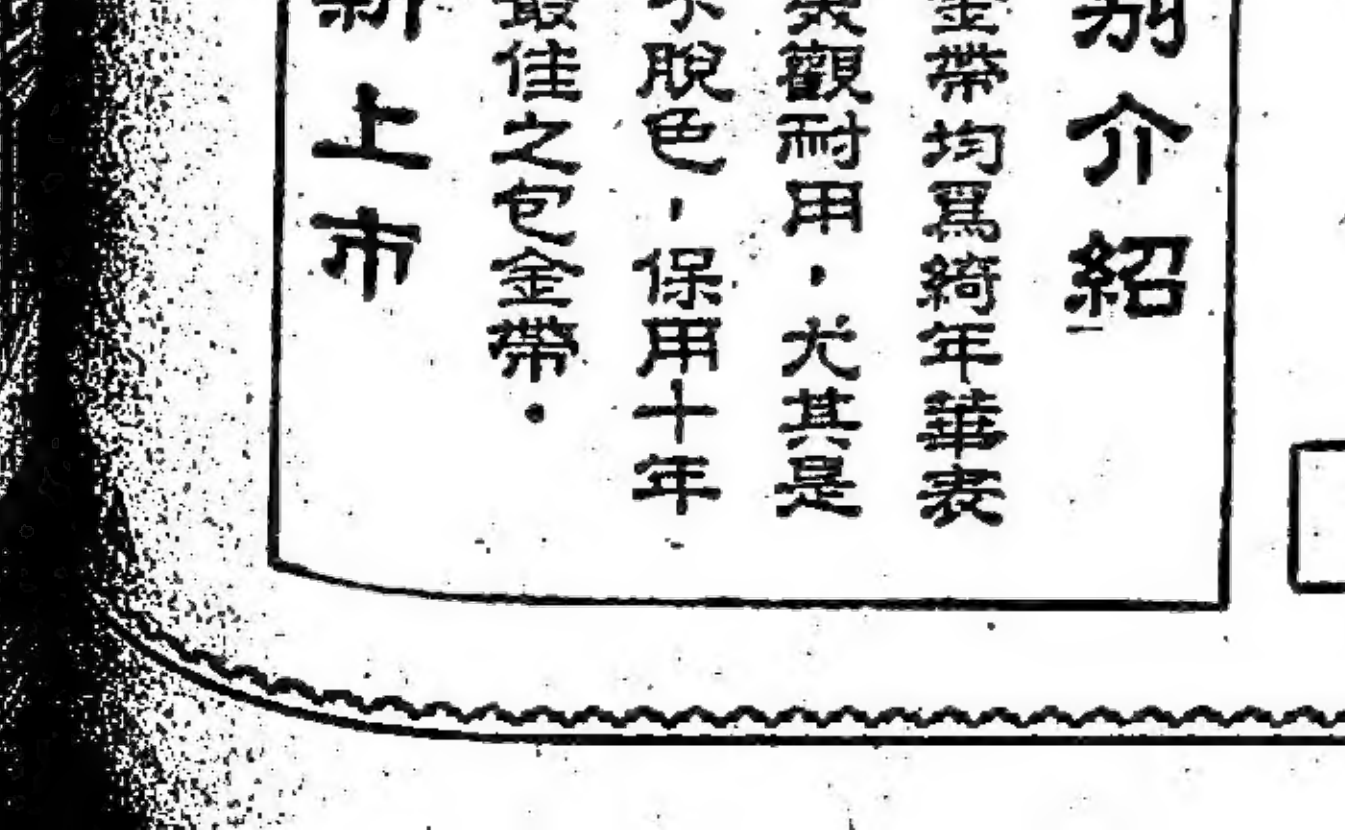 別介紹
金帶均爲綺年華表
美觀耐用，尤其是
不脫色，保用十年
最佳之包金帶．
新上市